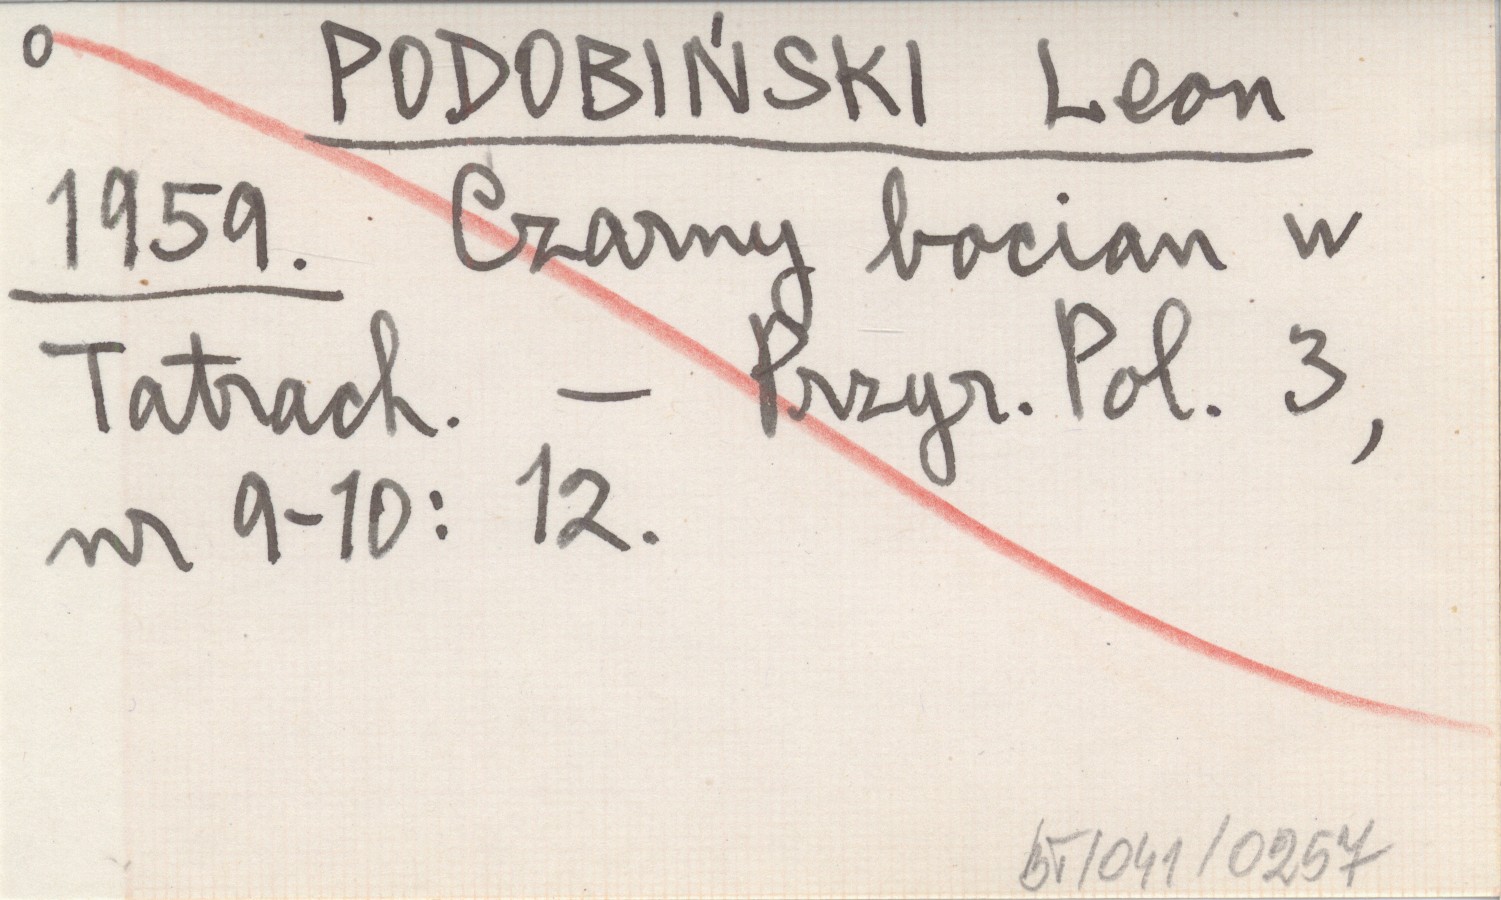 o PODOBIŃSKI Leon
1959. Czarny bocian w
Tatrach. – Przyr. Pol. 3,
nr 9-10: 12.
BT/041/0257